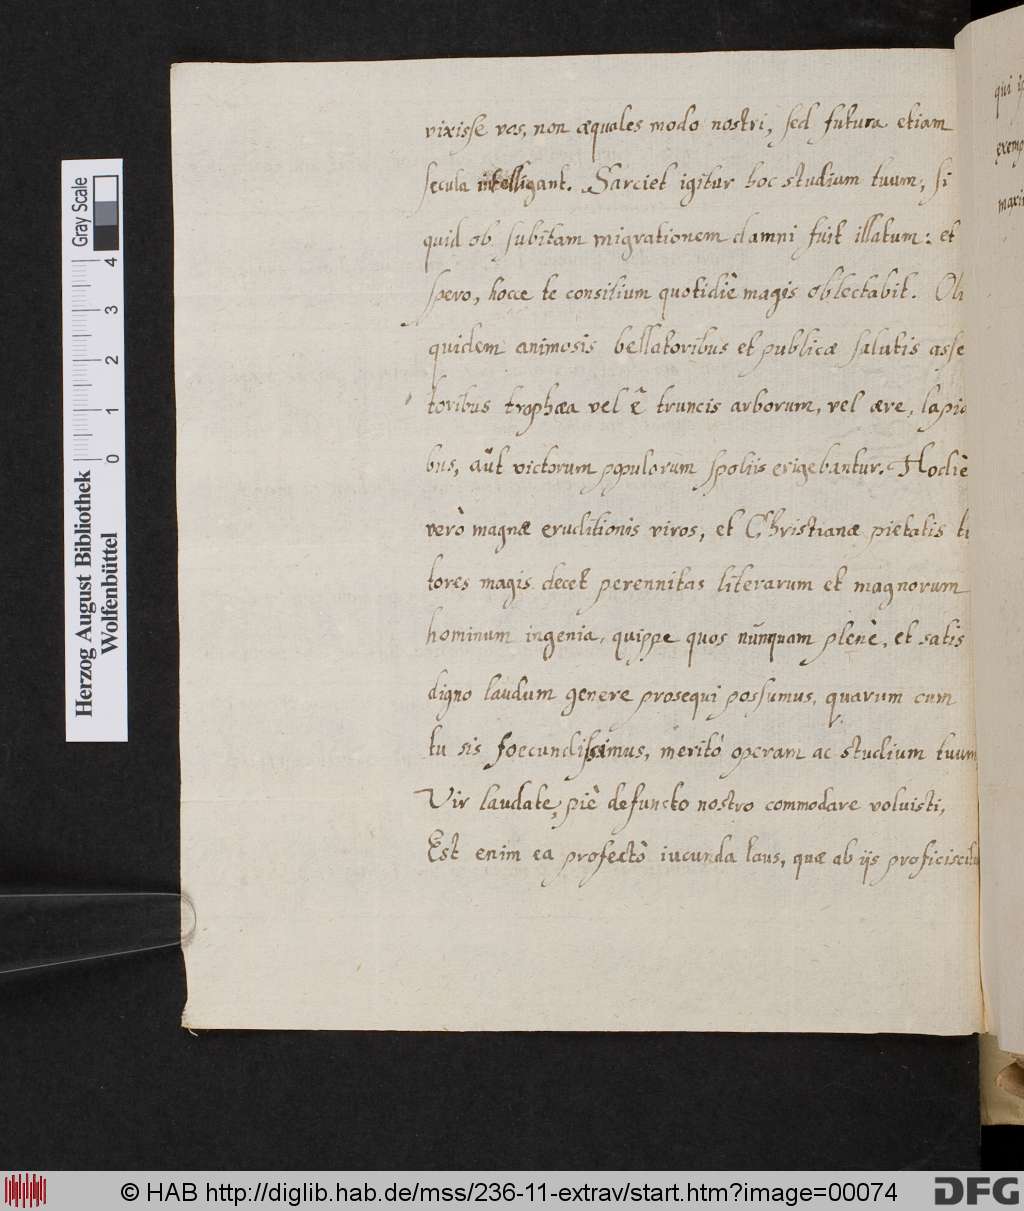 vixisse vos, non æquales modo nostri, sed futura etiam
secula intelligant. Sarciet igitur hoc studium tuum, si
quid ob subitam migrationem damni fuit illatum: et
spero, hocce te consilium quotidiè magis oblectabit. Oli
quidem animosis bellatoribus et publicæ salutis asse
toribus trophæa vel è truncis arborum, vel ære, lapid
bus, aut victorum populorum spoliis erigebantur. Hodiè
verò magnæ eruditionis viros, et Christianæ pietatis
tores magis decet perennitas literarum et magnorum
hominum ingenia, quippe quos nunquam plenè, et satis
digno laudum genere prosequi possumus, quarum cum
tu sis foecundissimus, meritò operam ac studium tuum
Vir laudate, piè defuncto nostro commodare voluisti,
Est enim ea profectò iucunda laus, quæ ab ijs proficiscitu
qui
exemp
maxi
Gray Scale
0 1 2 3 4
Herzog August Bibliothek
Wolfenbüttel
© HAB http://diglib.hab.de/mss/236-11-extrav/start.htm?image=00074
DFG